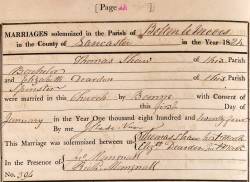 [Page
MARRIAGES solemnized in the Parish of Bolton le Moors
in the County of Lancaster in the Year 1824
Thomas Shaw of this Parish
Bachelor
and Elizabeth Dearden of this Parish
Spinster
were married in this Church by Banns with Consent of
this first Day of
January in the Year One thousand eight hundred and twenty four
By me
This Marriage was solemnized between us Thomas Shaw his Mark
Elizth Dearden her Mark
In the Presence of
No. 394